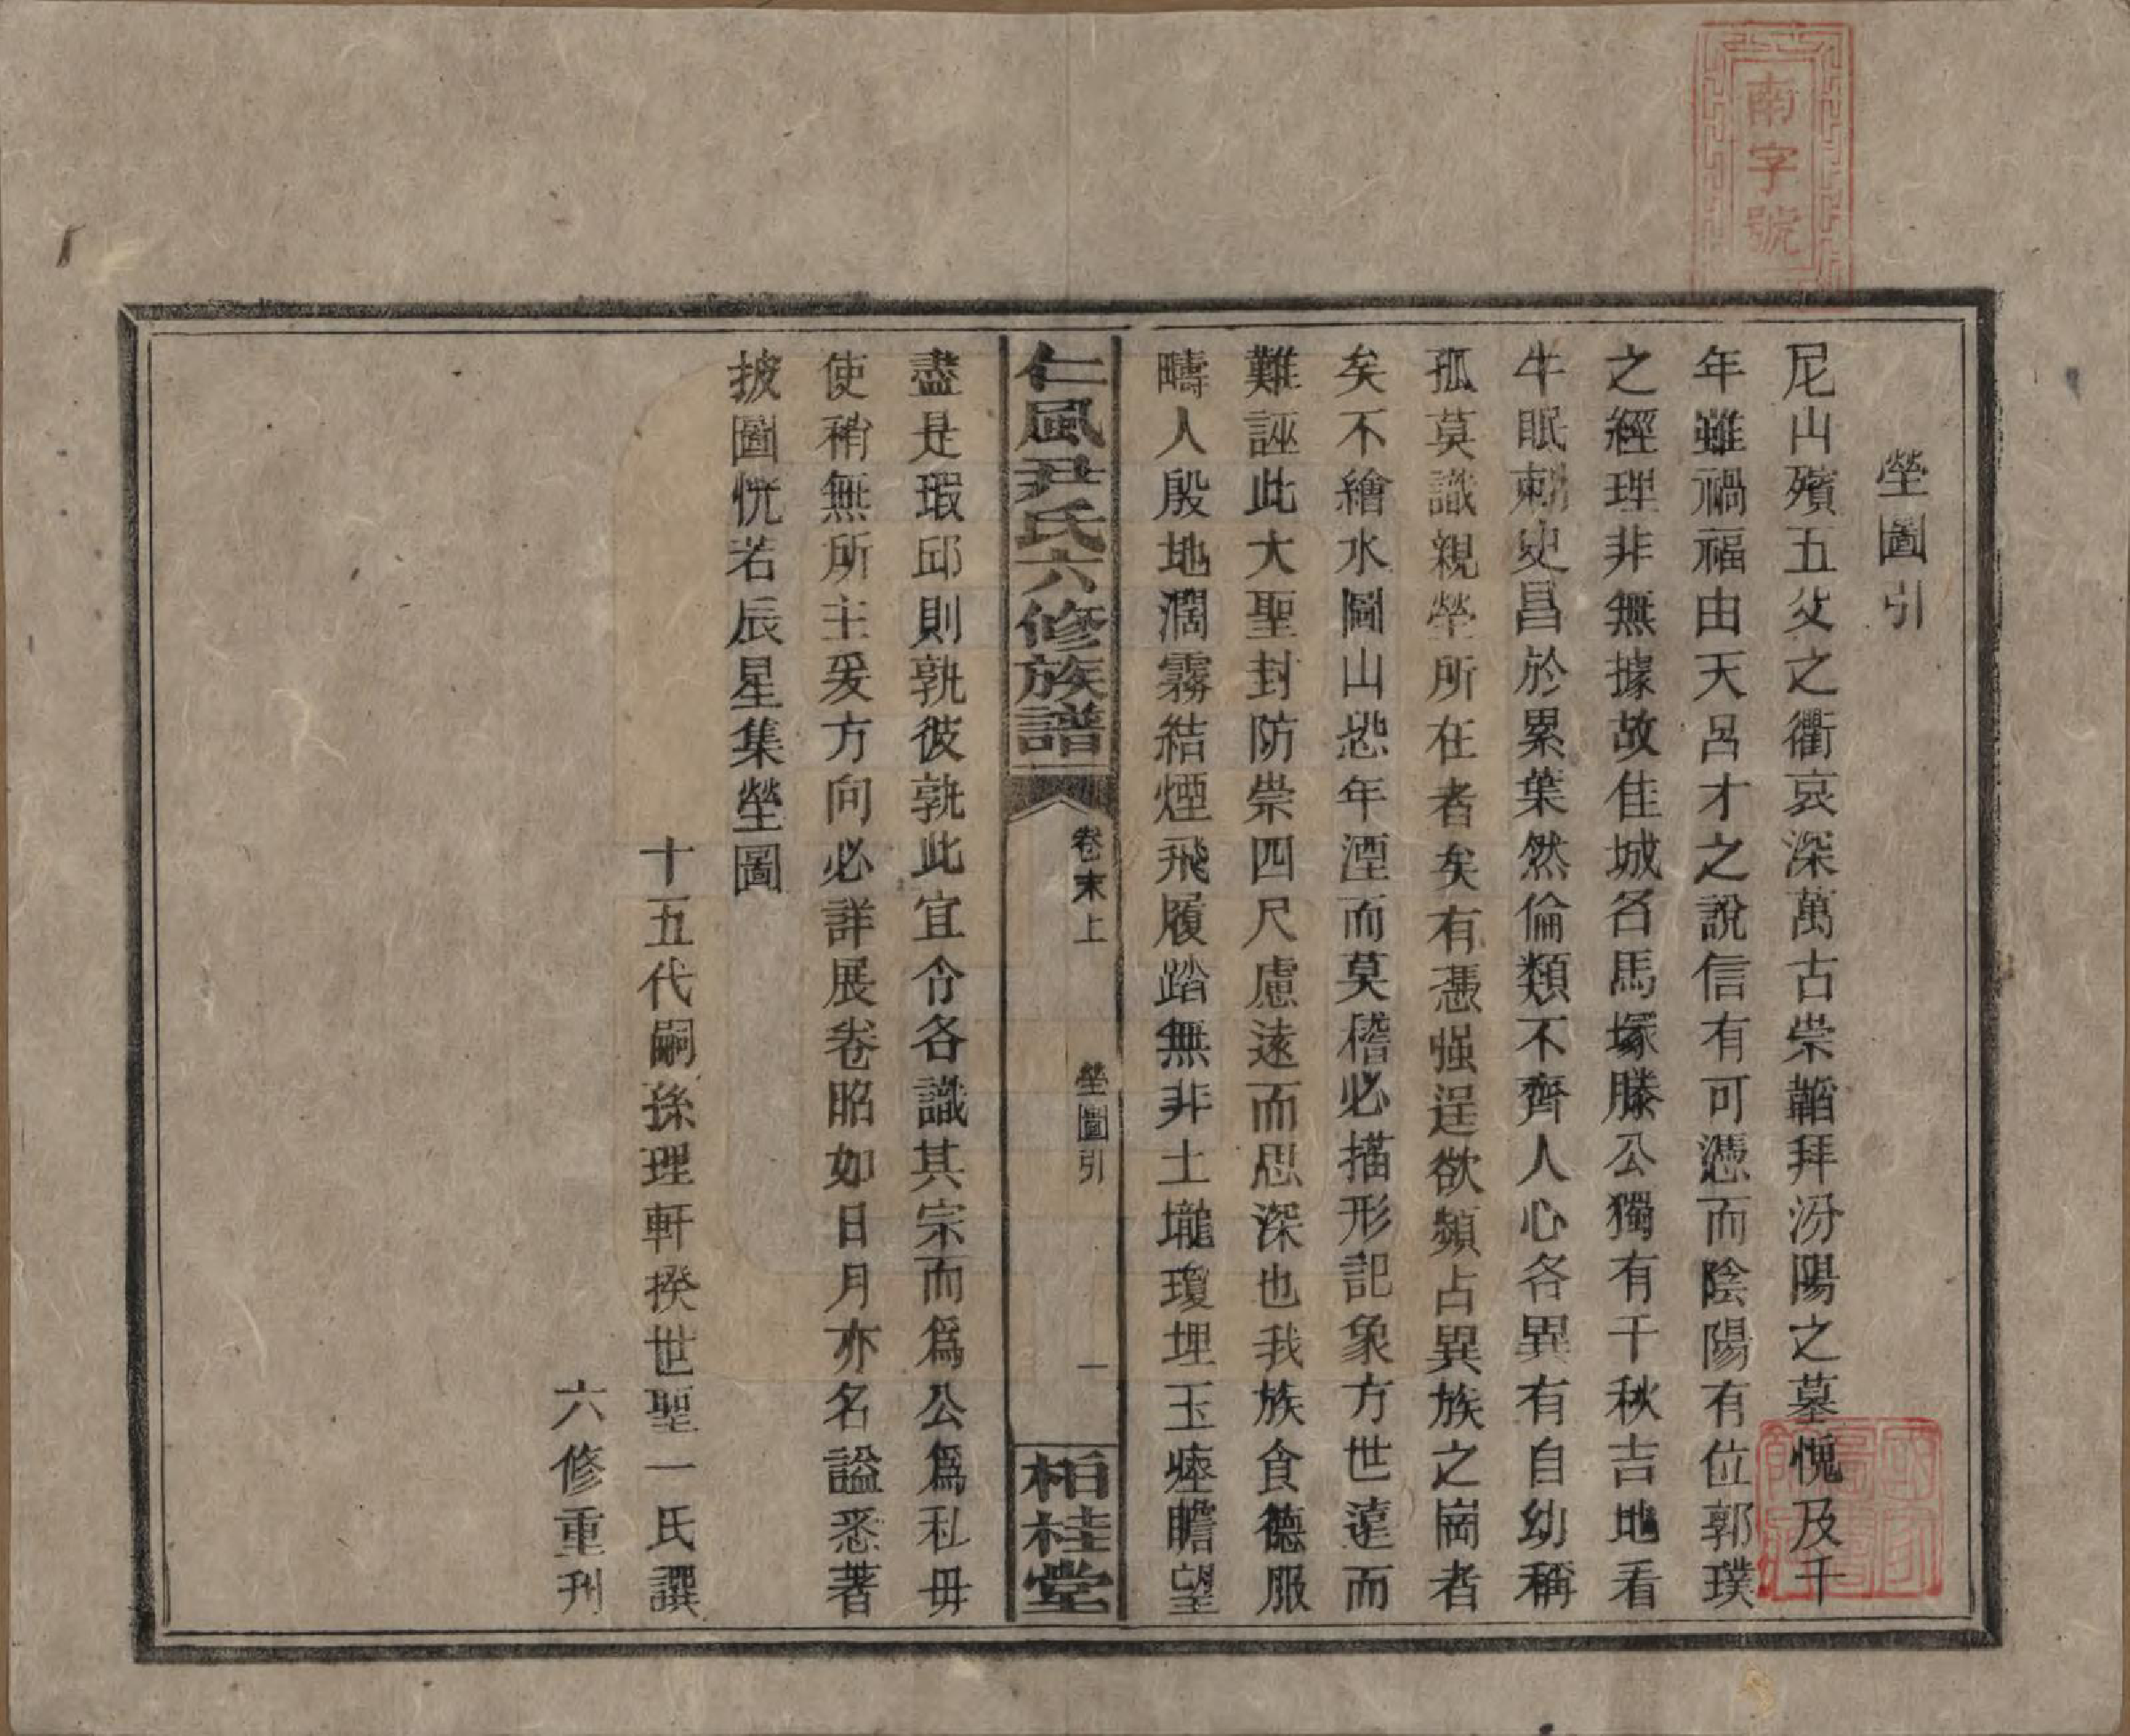 南字號
塋圖引
尼山殯五父之衢哀深萬古崇韜拜汾陽之墓愧及千
年雖禍福由天呂才之說信有可憑而陰陽有位郭璞
之經理非無據故佳城名馬塚滕公獨有千秋吉地看
牛眠刺史昌於累葉然倫類不齊人心各異有自幼稱
孤莫識親塋所在者矣有憑强逞欲頻占異族之崗者
矣不繪水圖山恐年湮而莫稽必描形記象方世遠而
難誣此大聖封防崇四尺慮遠而思深也我族食德服
疇人殷地濶霧結煙飛履踏無非土壠瓊埋玉瘞瞻望
仁風尹氏六修族譜
卷末上
塋圖引
一
柏桂堂
盡是瑕邱則孰彼孰此宜令各識其宗而爲公爲私毋
使稍無所主爰方向必詳展卷昭如日月亦名謚悉著
披圖恍若辰星集塋圖
十五代嗣孫理軒揆世聖一氏譔
六修重刊